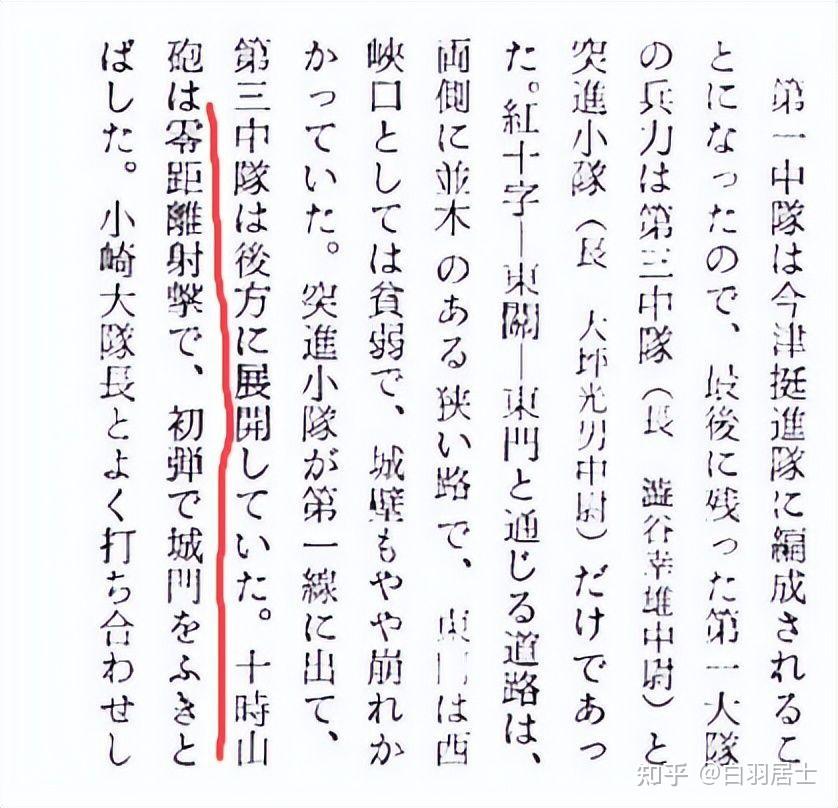 第一中隊は今津挺進隊に編成されるこ
とになったので、最後に残った第一大隊
の兵力は第三中隊（長　澁谷幸雄中尉）と
突進小隊（長　大坪光男中尉）だけであっ
た。紅十字―東關―東門と通じる道路は、
両側に並木のある狭い路で、東門は西
峽口としては貧弱で、城壁もやや崩れか
かっていた。突進小隊が第一線に出て、
第三中隊は後方に展開していた。十時山
砲は零距離射撃で、初弾で城門をふきと
ばした。小崎大隊長とよく打ち合わせし
知乎 @白羽居士